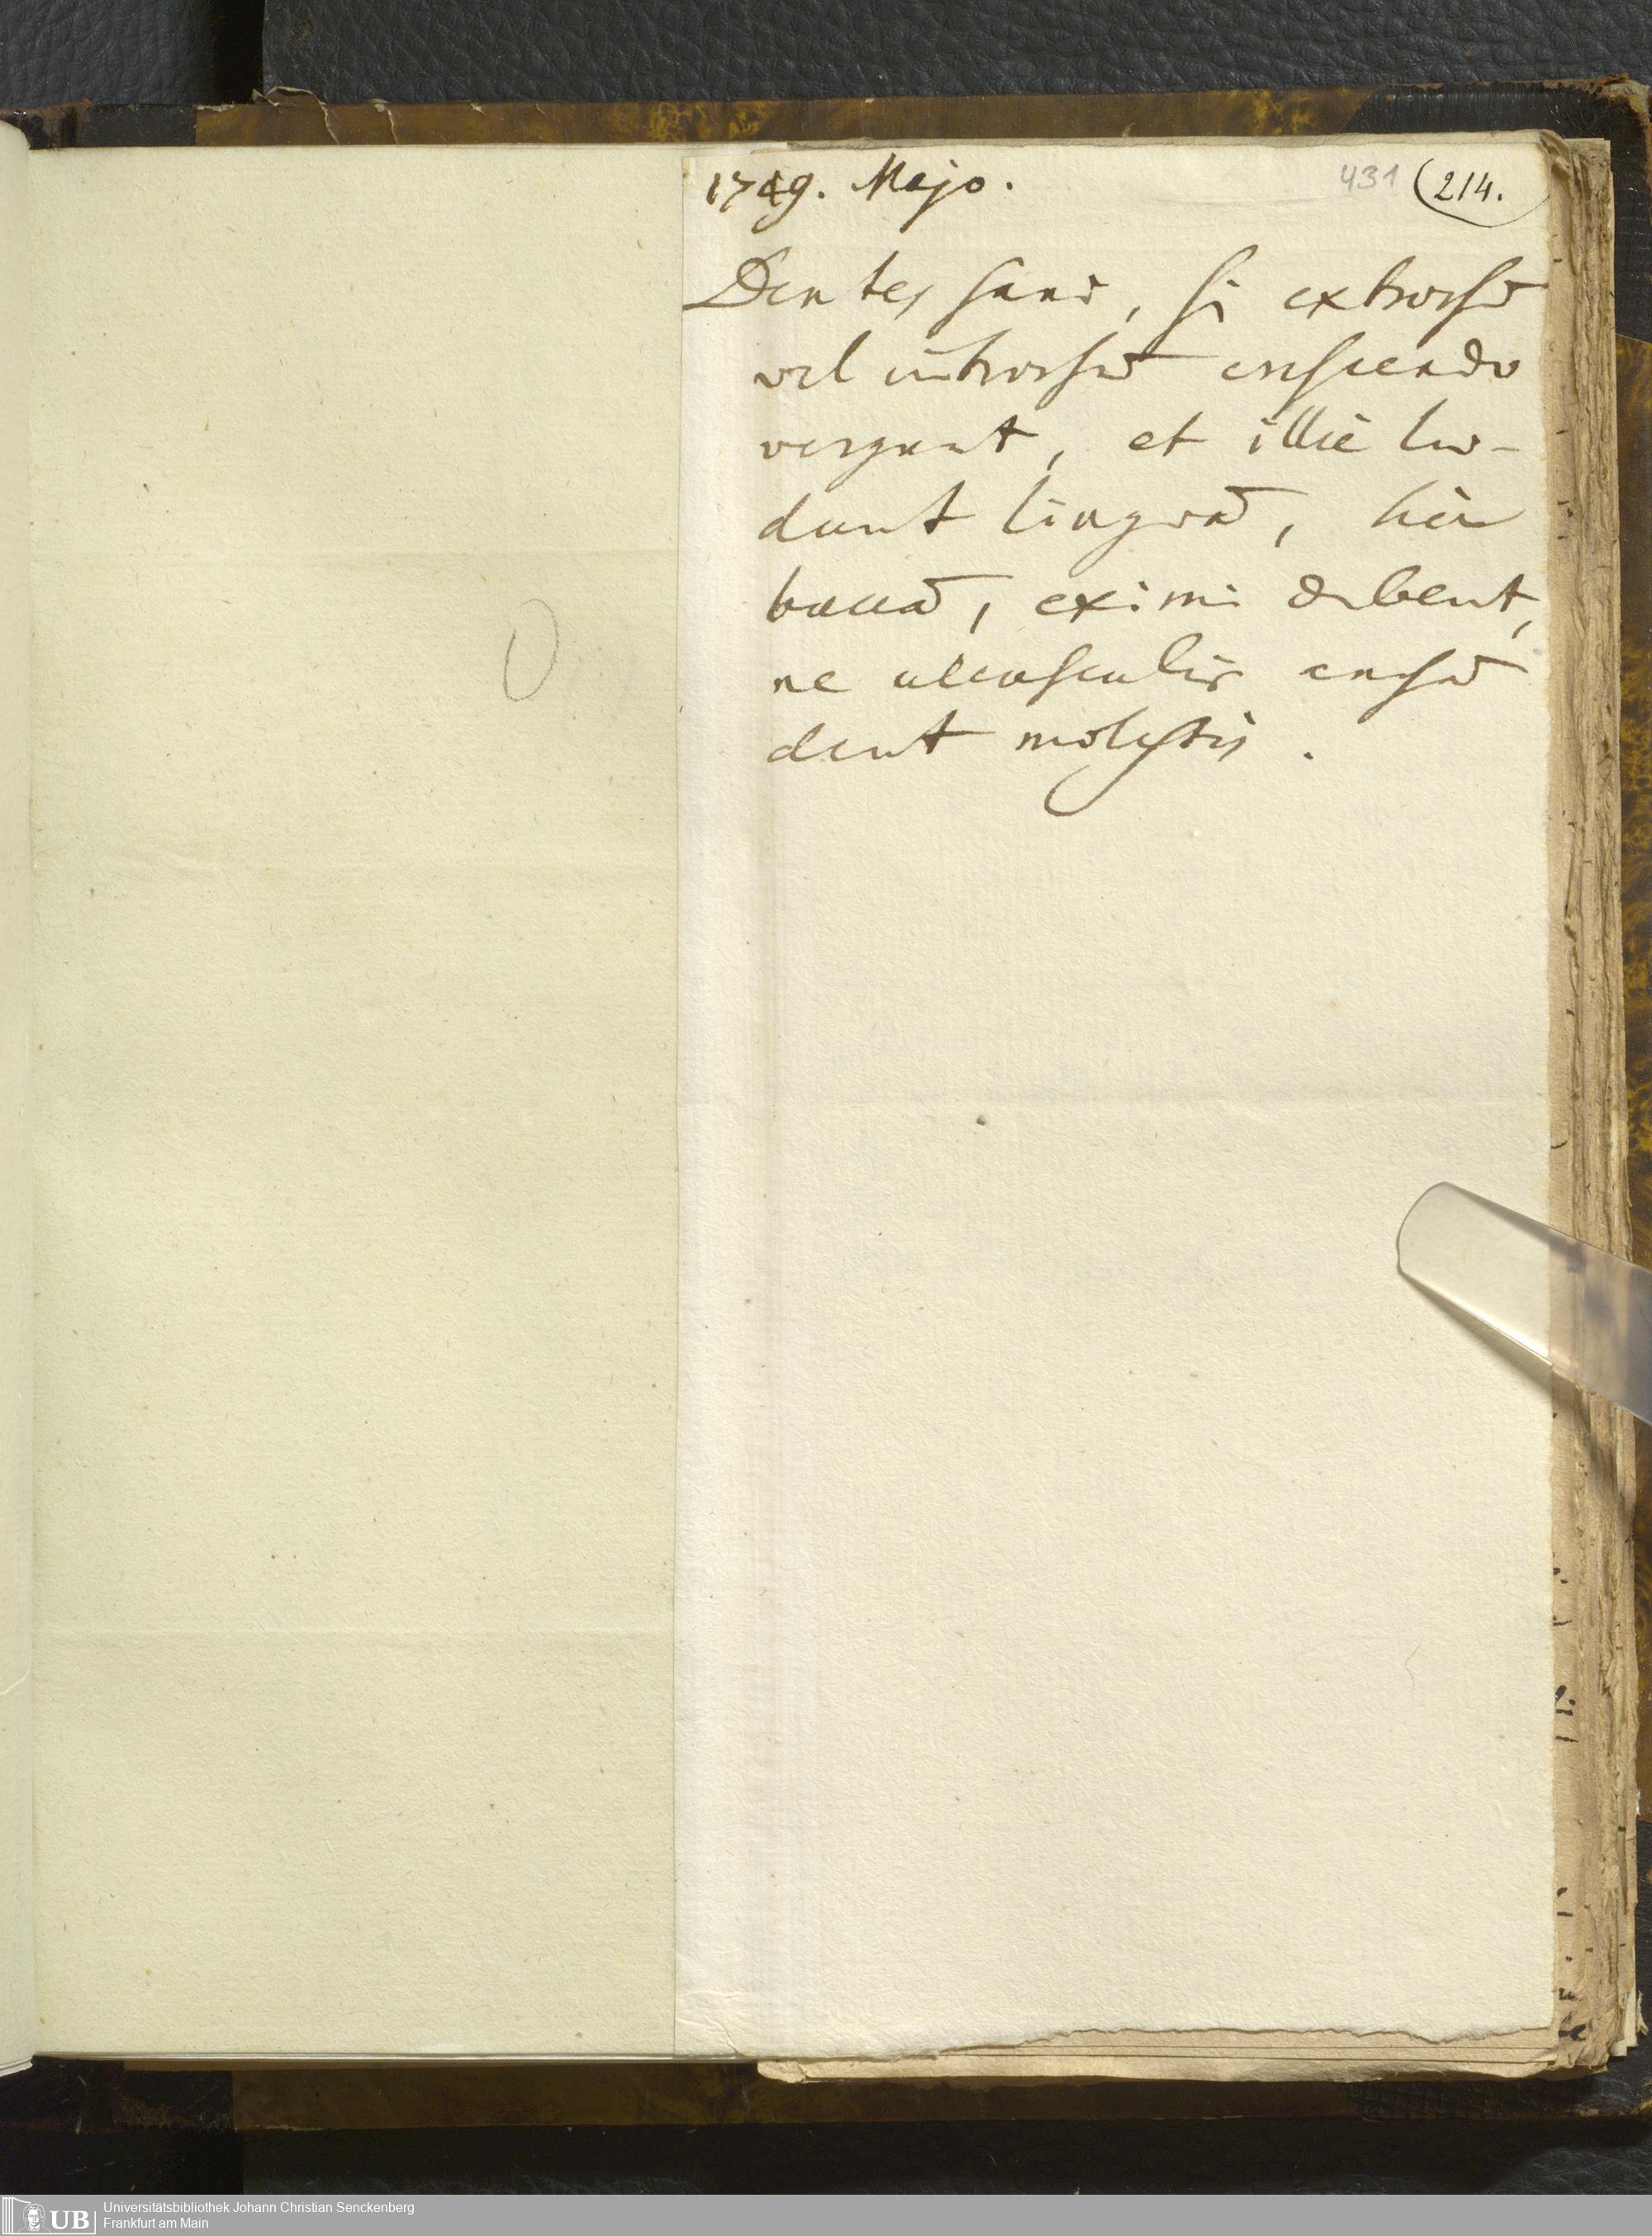 1749. Majo. 431 (214.
Dentes sani, si extrorsū
vel introrsū crescendo
vergunt, et illic lae-
dunt linguā, hic
buccā, eximi debent,
ne ulcusculis ansā
dent molestis.
Universitätsbibliothek Johann Christian Senckenberg
Frankfurt am Main
UB